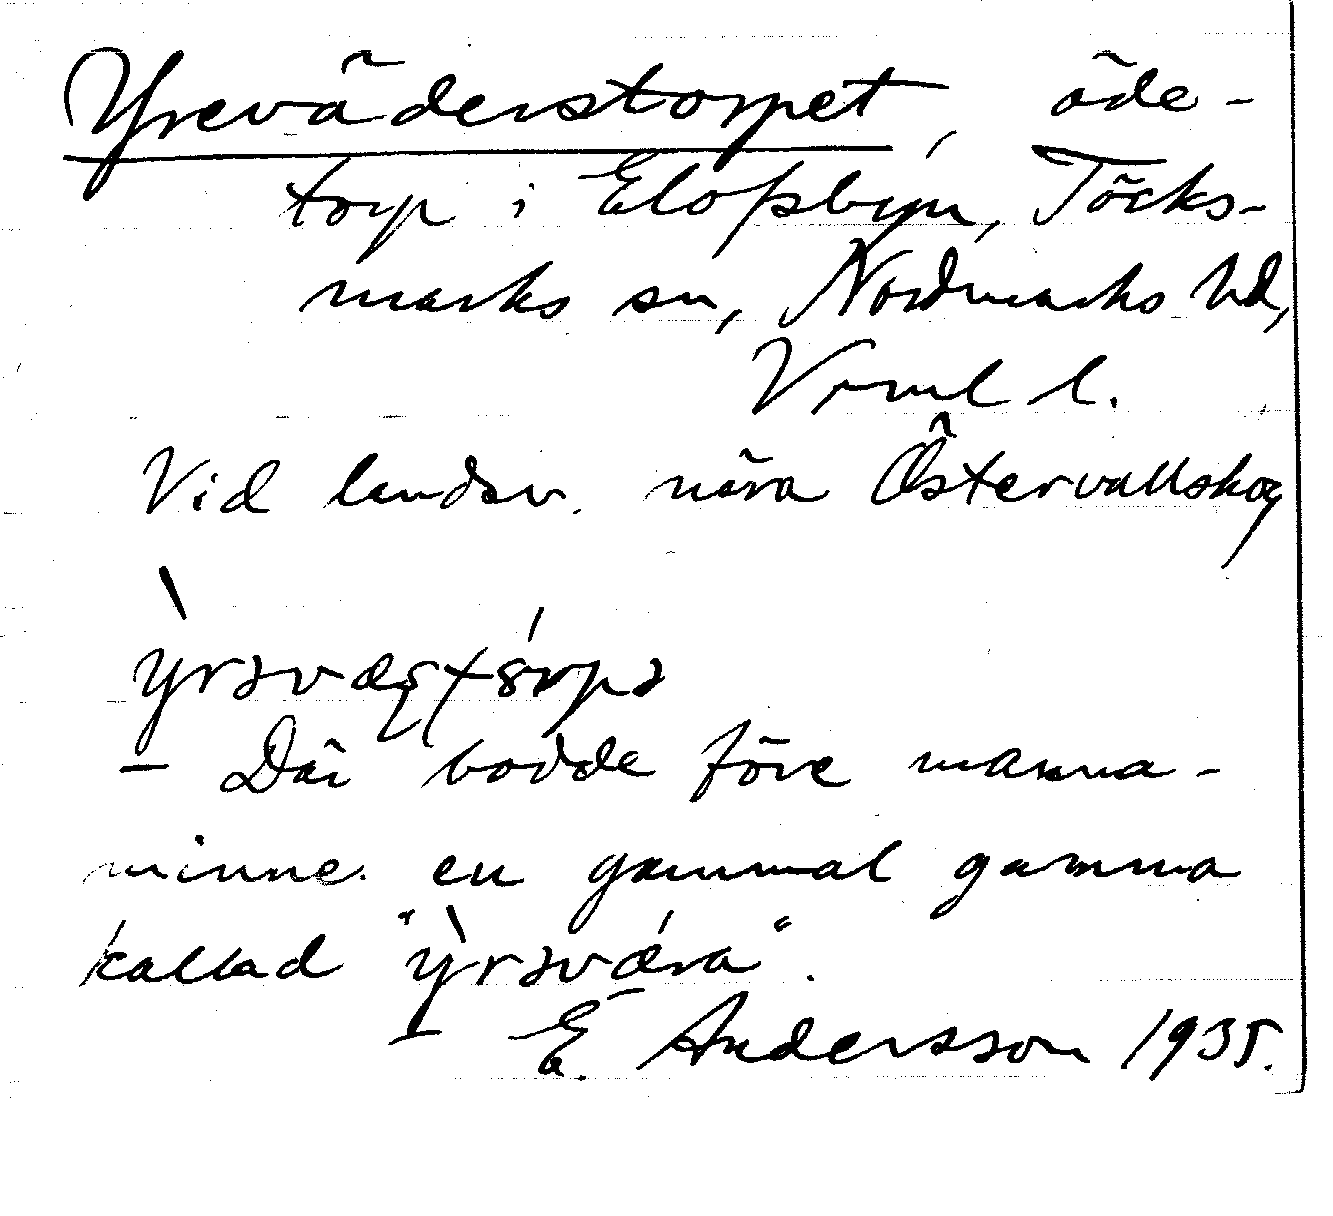 Yreväderstorpet, öde-
torp i Elofsbyn, Töcks-
marks sn, Nordmarks hd,
Vrml l.
Vid landsv. nära Östervallskog
– Där bodde före manna-
minne en gammal gumma
kallad "ỳrəvǽra".
E. Andersson 1935.